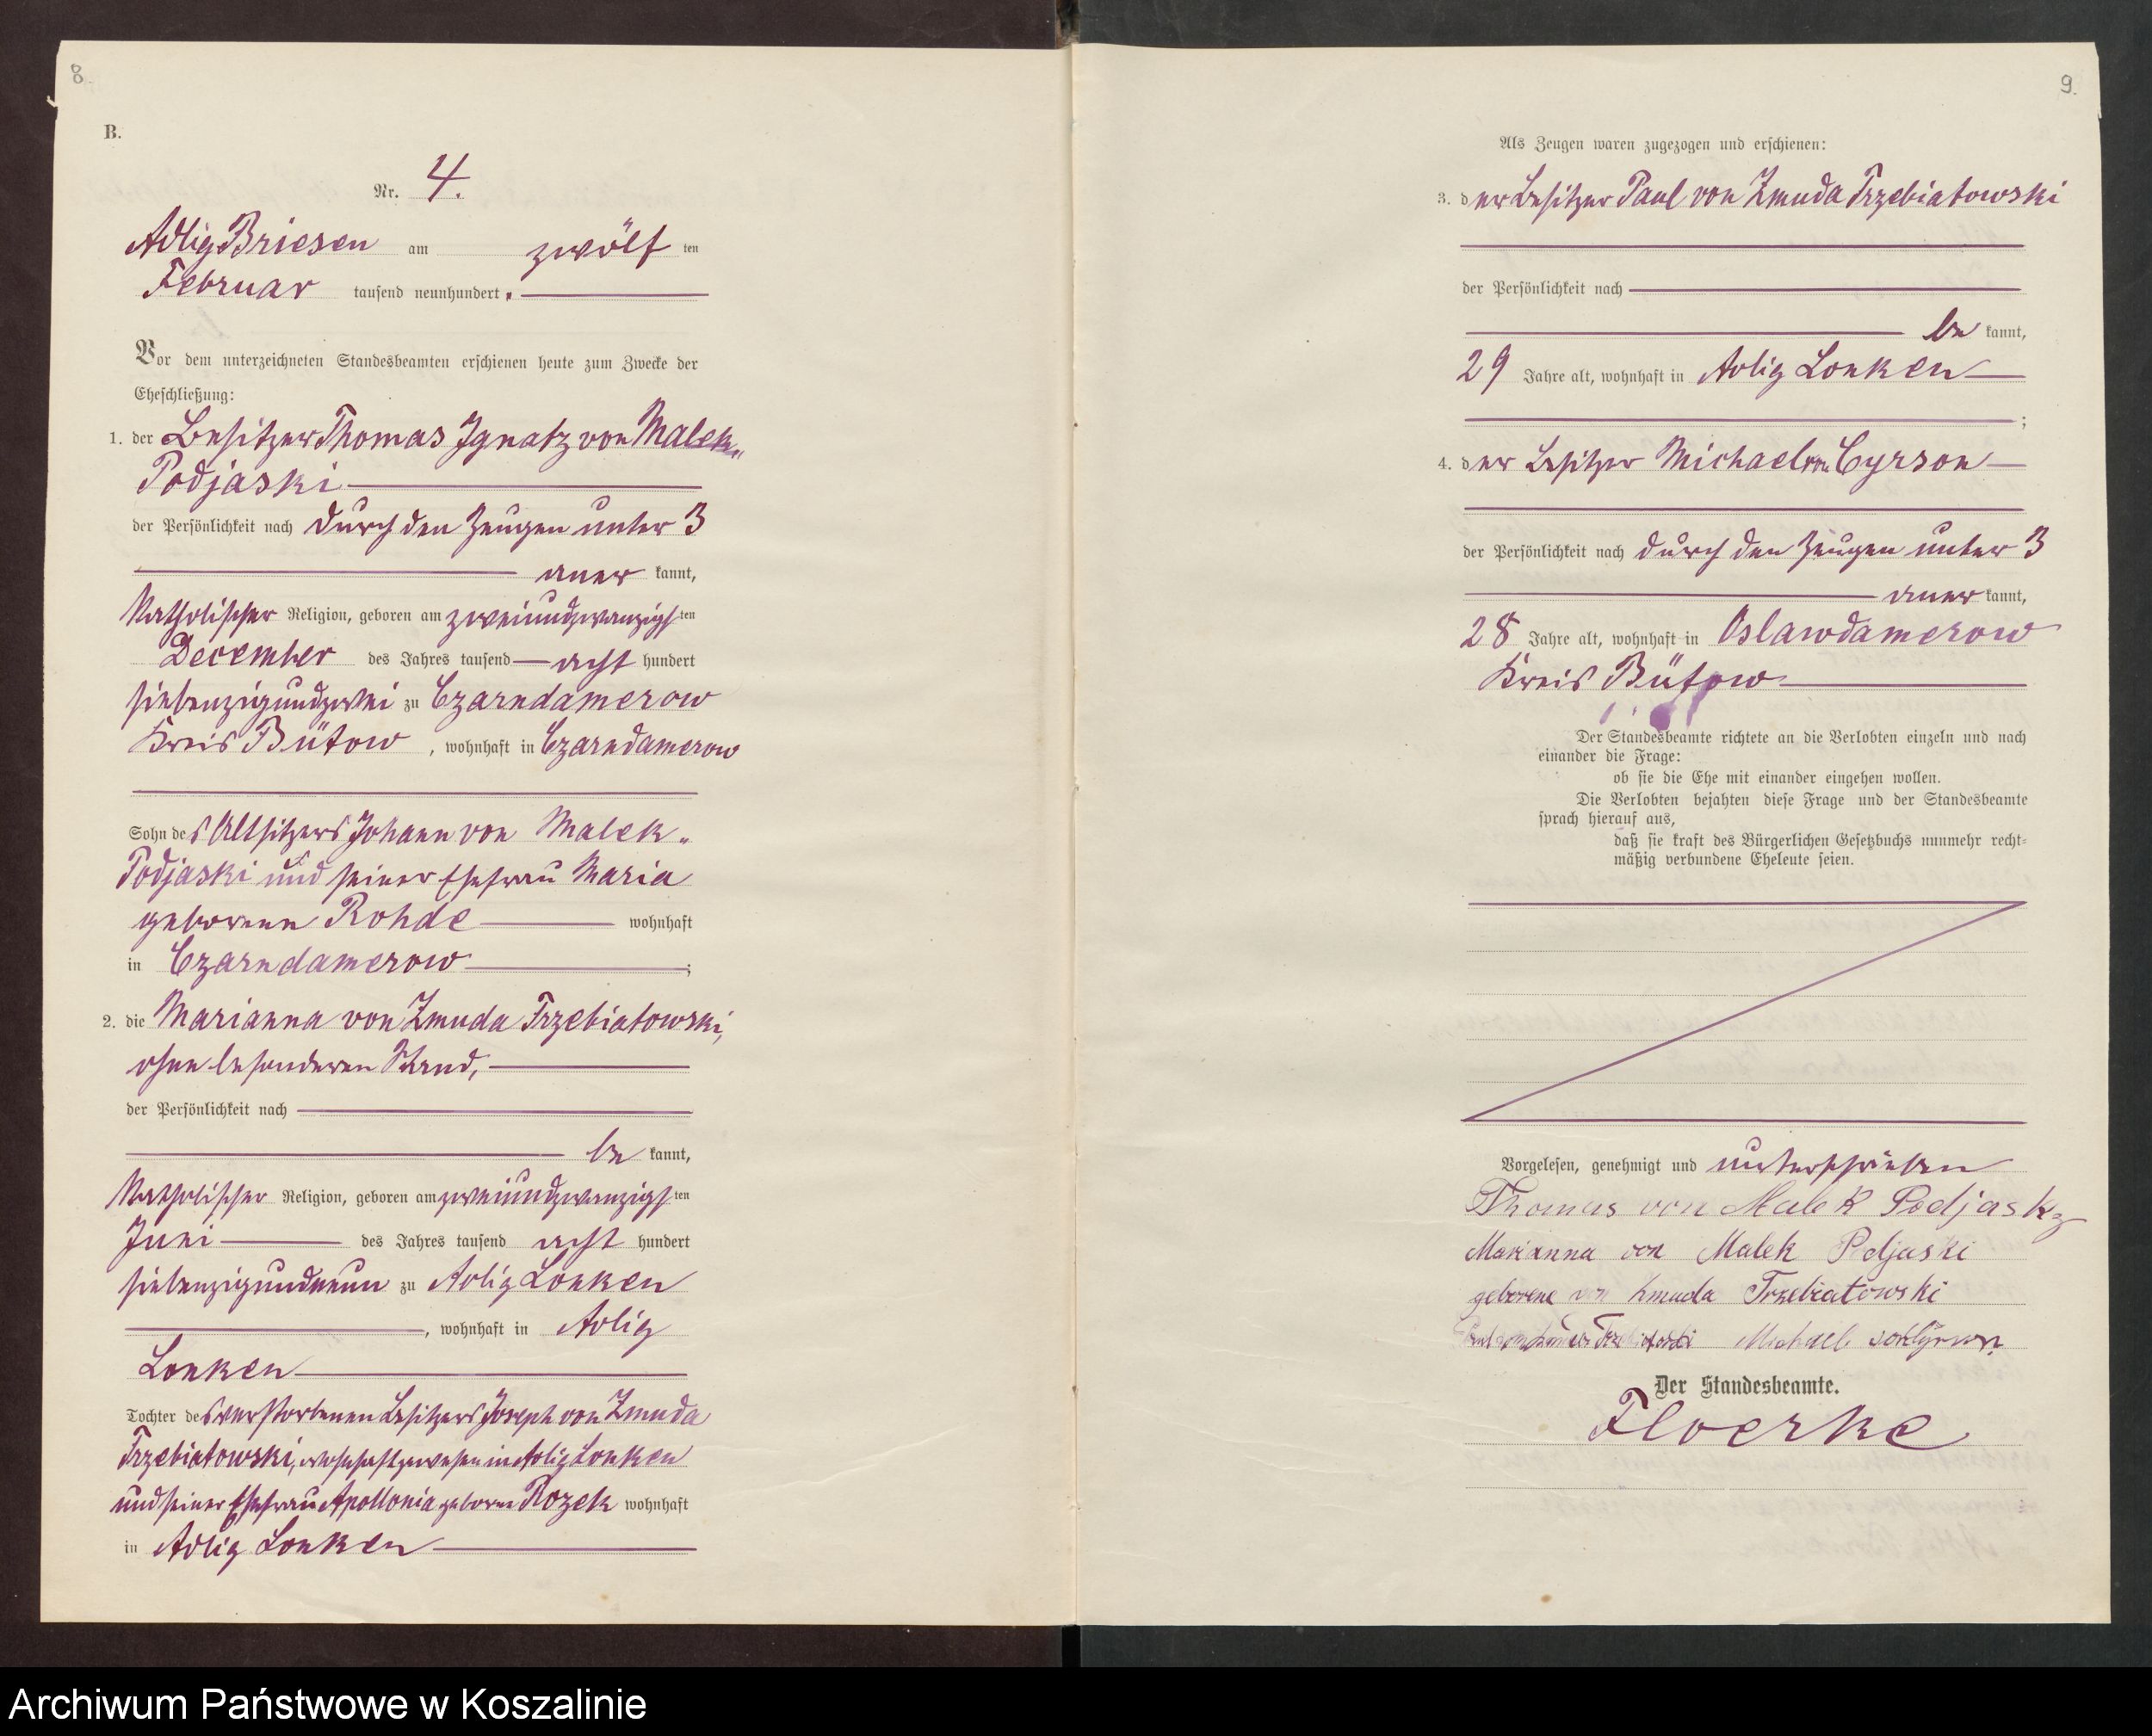 8.
B.
Nr. 4.
Adlig Briesen am zwölf ten
Februar tausend neunhundert.
Vor dem unterzeichneten Standesbeamten erschienen heute zum Zwecke der
Eheschließung:
1. der Besitzer Thomas Ignatz von Malek„
Podjaski
der Persönlichkeit nach durch den Zeugen unter 3
aner kannt,
katholischer Religion, geboren am zweiundzwanzigsten
December des Jahres tausend acht hundert
siebenzigundzwei zu Czarndamerow
Kreis Bütow, wohnhaft in Czarndamerow
Sohn des Altsitzers Johann von Malek„
Podjaski und seiner Ehefrau Maria
geborenen Rohde wohnhaft
in Czarndamerow;
2. die Marianna von Zmuda Trzebiatowski,
ohne besonderen Stand,
der Persönlichkeit nach
be kannt,
katholischer Religion, geboren am zweiundzwanzigsten
Juni des Jahres tausend acht hundert
siebenzigundneun zu Adlig Lonken
, wohnhaft in Adlig
Lonken
Tochter des verstorbenen Besitzers Joseph von Zmuda
Trzebiatowski, wohnhaft gewesen in Adlig Lonken
und seiner Ehefrau Apollonia geborene Rozek wohnhaft
in Adlig Lonken
9.
Als Zeugen waren zugezogen und erschienen:
3. der Besitzer Paul von Zmuda Trzebiatowski
der Persönlichkeit nach
be kannt,
29 Jahre alt, wohnhaft in Adlig Lonken
;
4. der Besitzer Michael von Cyrson
der Persönlichkeit nach durch den Zeugen unter 3
aner kannt,
28 Jahre alt, wohnhaft in Oslawdamerow
Kreis Bütow
Der Standesbeamte richtete an die Verlobten einzeln und nach
einander die Frage:
ob sie die Ehe mit einander eingehen wollen.
Die Verlobten bejahten diese Frage und der Standesbeamte
sprach hierauf aus,
daß sie kraft des Bürgerlichen Gesetzbuchs nunmehr recht-
mäßig verbundene Eheleute seien.
Vorgelesen, genehmigt und unterschrieben
Thomas von Malek Podjaski
Marianna von Malek Podjaski
geborene von Zmuda Trzebiatowski
Paul von Zmuda Trzebiatowski Michael von Cyrson
Der Standesbeamte.
Floerke
Archiwum Państwowe w Koszalinie